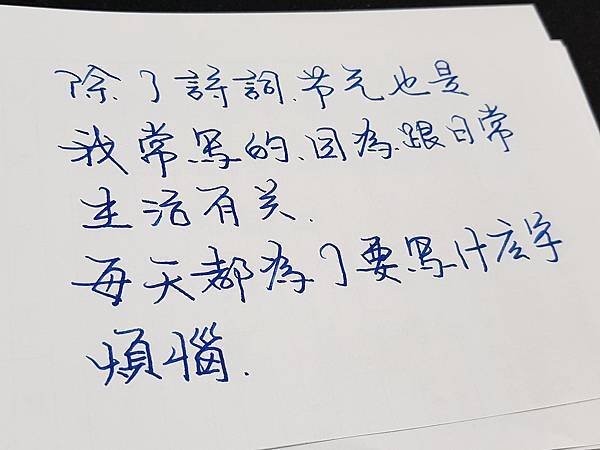 除了詩詞、节气也是
我常写的、因為跟日常
生活有关.
每天都為了要写什広字
煩惱.